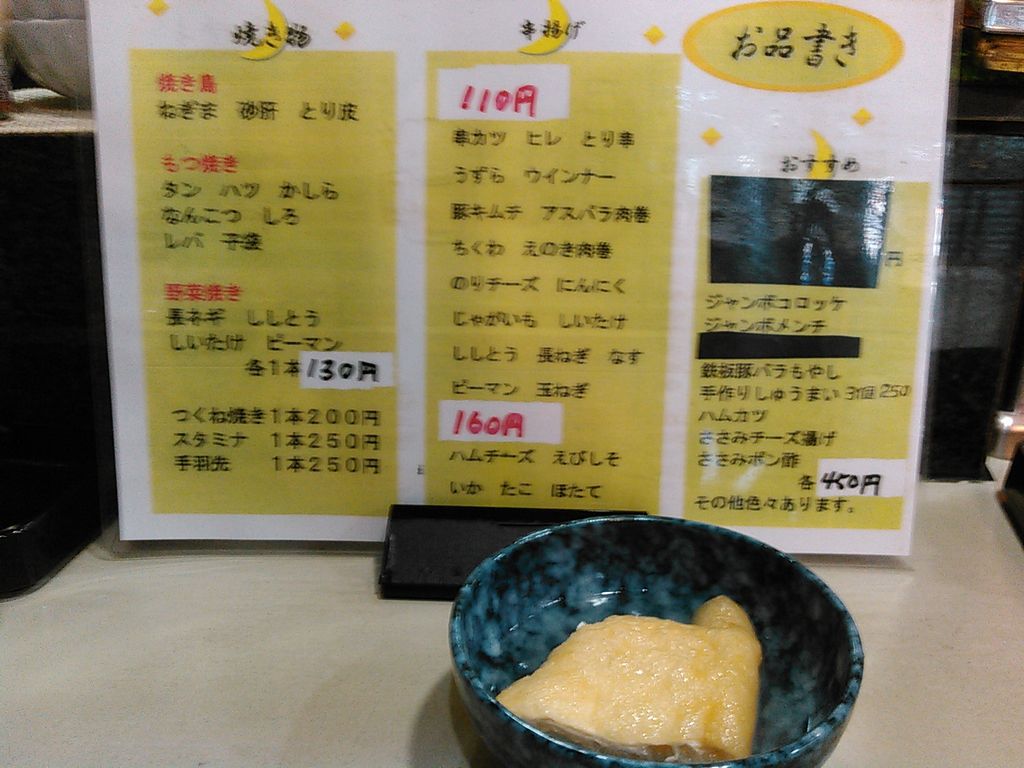 お品書き
焼き物
焼き鳥
ねぎま 砂肝 とり皮
もつ焼き
タン ハツ かしら
なんこつ しろ
レバ 子袋
野菜焼き
長ネギ ししとう
しいたけ ピーマン
各1本130円
つくね焼き1本200円
スタミナ 1本250円
手羽先 1本250円
串揚げ
110円
串カツ ヒレ とり串
うずら ウインナー
豚キムチ アスパラ肉巻
ちくわ えのき肉巻
のりチーズ にんにく
じゃがいも しいたけ
ししとう 長ねぎ なす
ピーマン 玉ねぎ
160円
ハムチーズ えびしそ
いか たこ ほたて
おすすめ
円
ジャンボコロッケ
ジャンボメンチ
鉄板豚バラもやし
手作りしゅうまい 3個 250
ハムカツ
ささみチーズ揚げ
ささみポン酢
各450円
その他色々あります。